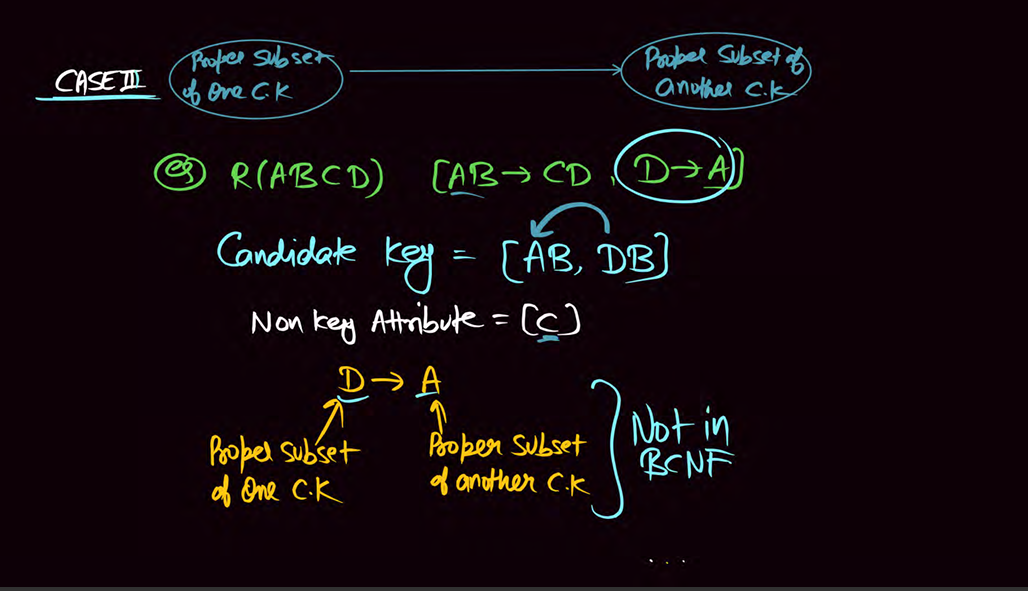 CASE III
Proper Subset
of One C.K
Proper Subset of
another C.K
eg R(ABCD) [AB→CD, D→A]
Candidate Key = [AB, DB]
Non Key Attribute = [C]
D → A
Proper subset
of One C.K
Proper subset
of another C.K
Not in
BCNF
....